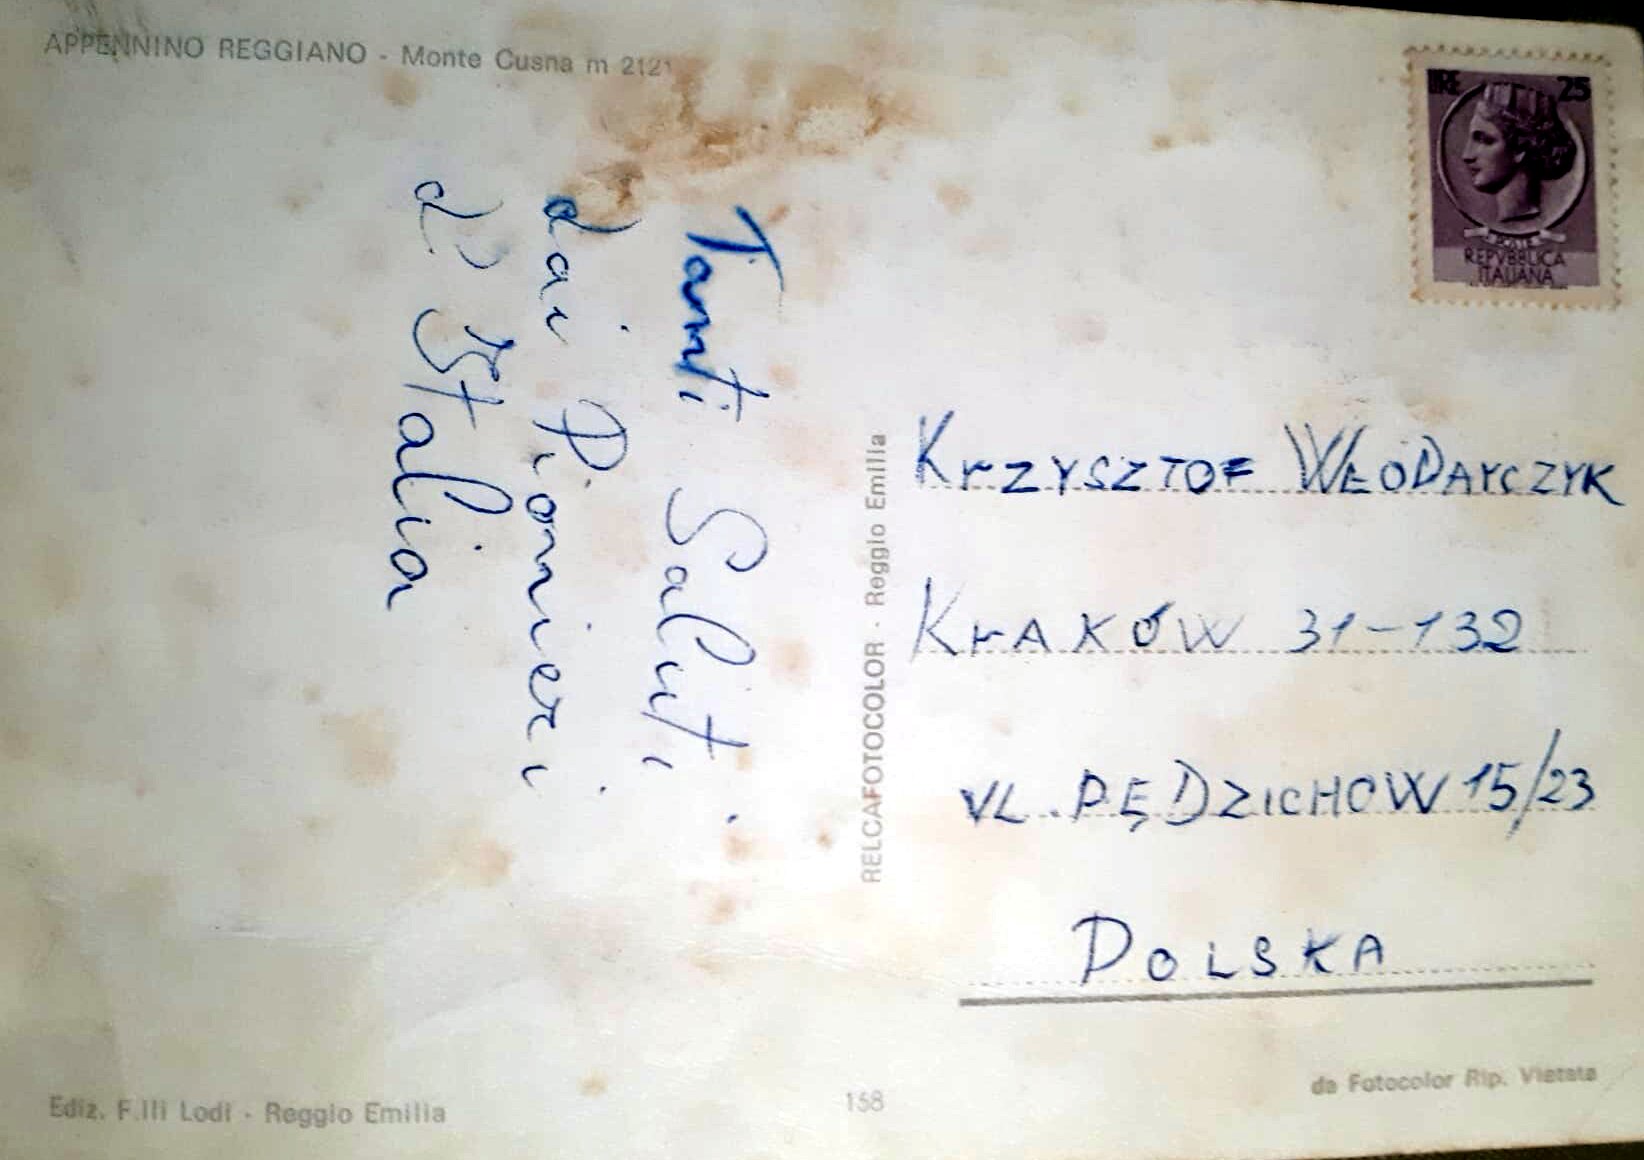 APPENNINO REGGIANO - Monte Cusna m 2121
LIRE 25
POSTE
REPVBBLICA
ITALIANA
Tanti Saluti
dai Pionieri
d' Italia
RELCAFOTOCOLOR - Reggio Emilia
KrZYSZTOF WŁODArCZYK
KrAKÓW 31-132
UL. PĘDZICHOW 15/23
POLSKA
Ediz. F.lli Lodi - Reggio Emilia
158
da Fotocolor Rip. Vietata